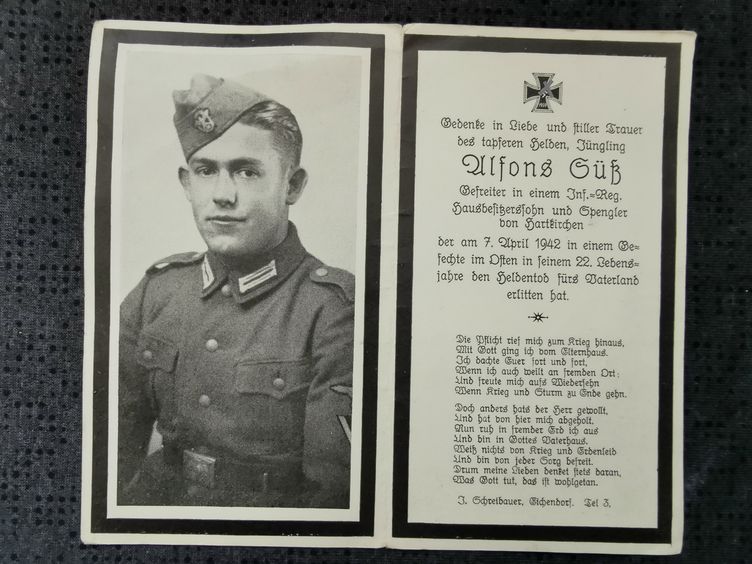 Gedenke in Liebe und stiller Trauer
des tapferen Helden, Jüngling
Alfons Süß
Gefreiter in einem Inf.=Reg.
Hausbesitzerssohn und Spengler
von Hartkirchen
der am 7. April 1942 in einem Ge=
fechte im Osten in seinem 22. Lebens=
jahre den Heldentod fürs Vaterland
erlitten hat.
Die Pflicht rief mich zum Krieg hinaus,
Mit Gott ging ich vom Elternhaus.
Ich dachte Euer fort und fort,
Wenn ich auch weilt an fremden Ort:
Und freute mich aufs Wiedersehn
Wenn Krieg und Sturm zu Ende gehn.
Doch anders hats der Herr gewollt,
Und hat von hier mich abgeholt.
Nun ruh in fremder Erd ich aus
Und bin in Gottes Vaterhaus.
Weiß nichts von Krieg und Erdenleid
Und bin von jeder Sorg befreit.
Drum meine Lieben denket stets daran,
Was Gott tut, das ist wohlgetan.
J. Schreibauer, Eichendorf. Tel 3.